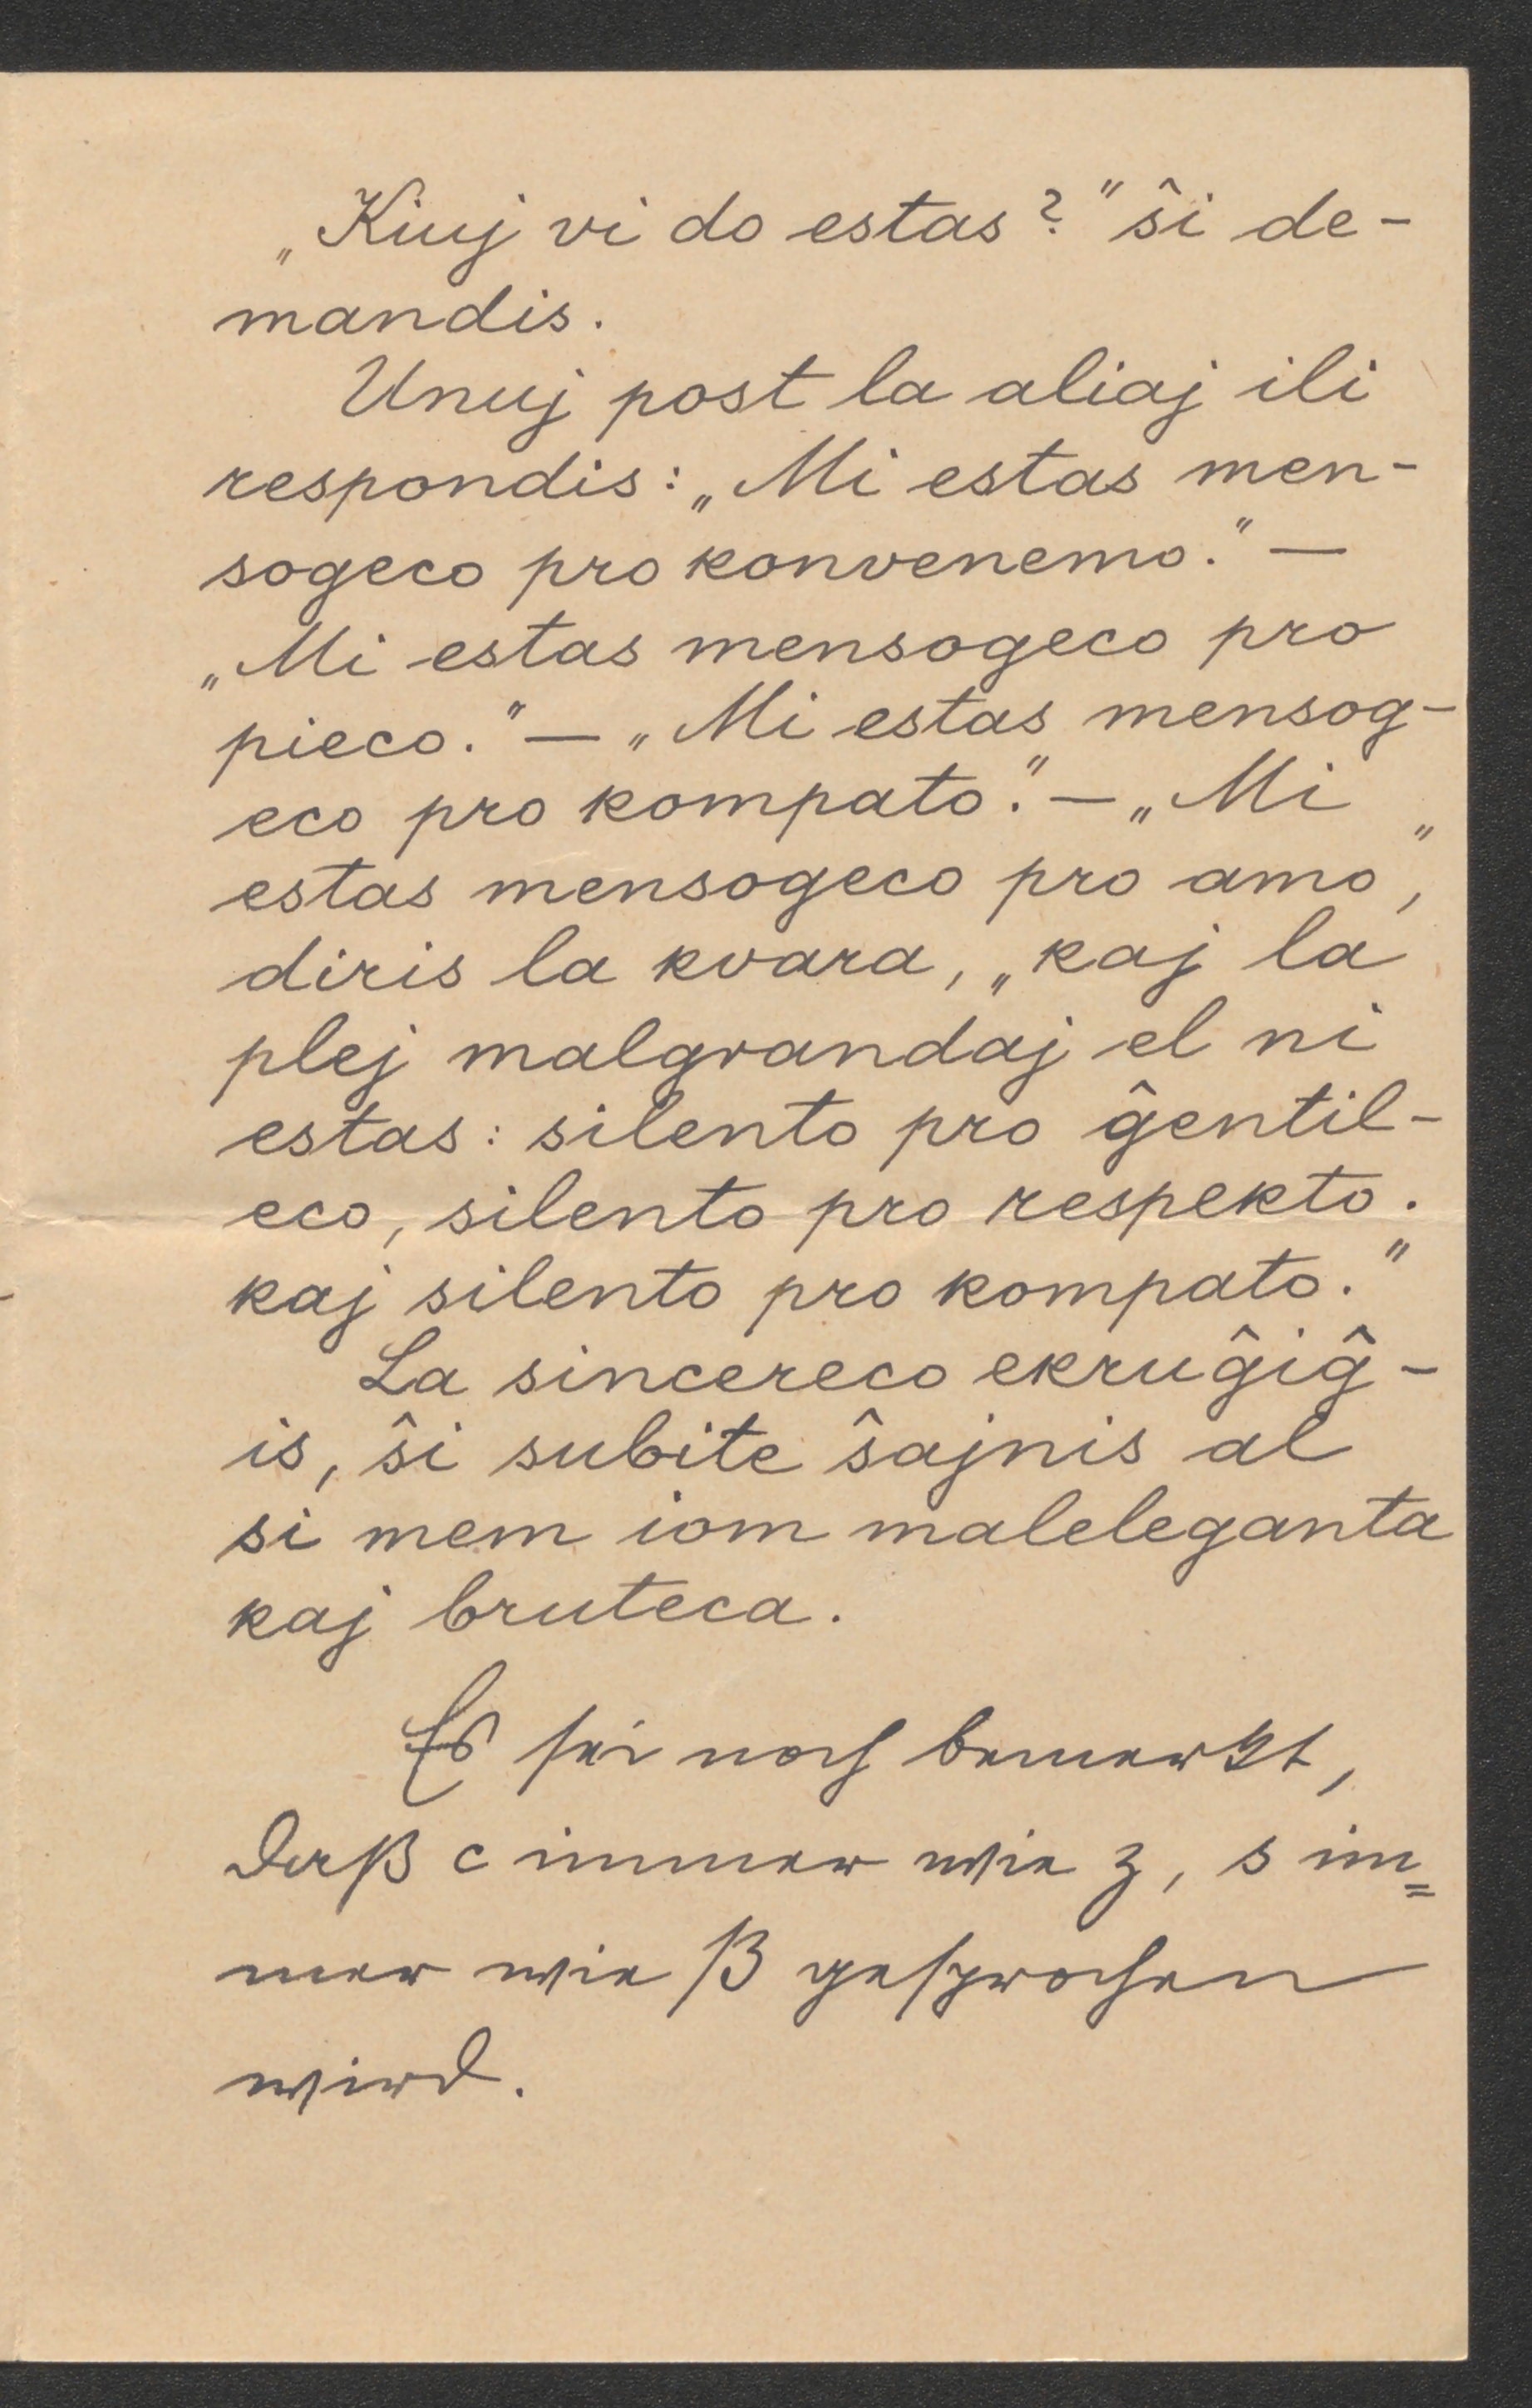 „Kiuj vi do estas?" ŝi de-
mandis.
Unuj post la aliaj ili
respondis: „Mi estas men-
sogeco pro konvenemo." —
„Mi estas mensogeco pro
pieco." — „Mi estas mensog-
eco pro kompato." — „Mi
estas mensogeco pro amo",
diris la kvara, „kaj la
plej malgrandaj el ni
estas: silento pro ĝentil-
eco, silento pro respekto.
kaj silento pro kompato."
La sincereco ekruĝiĝ-
is, ŝi subite ŝajnis al
si mem iom maleleganta
kaj bruteca.
Es sei noch bemerkt,
daß c immer wie z, s im=
mer wie ß gesprochen
wird.